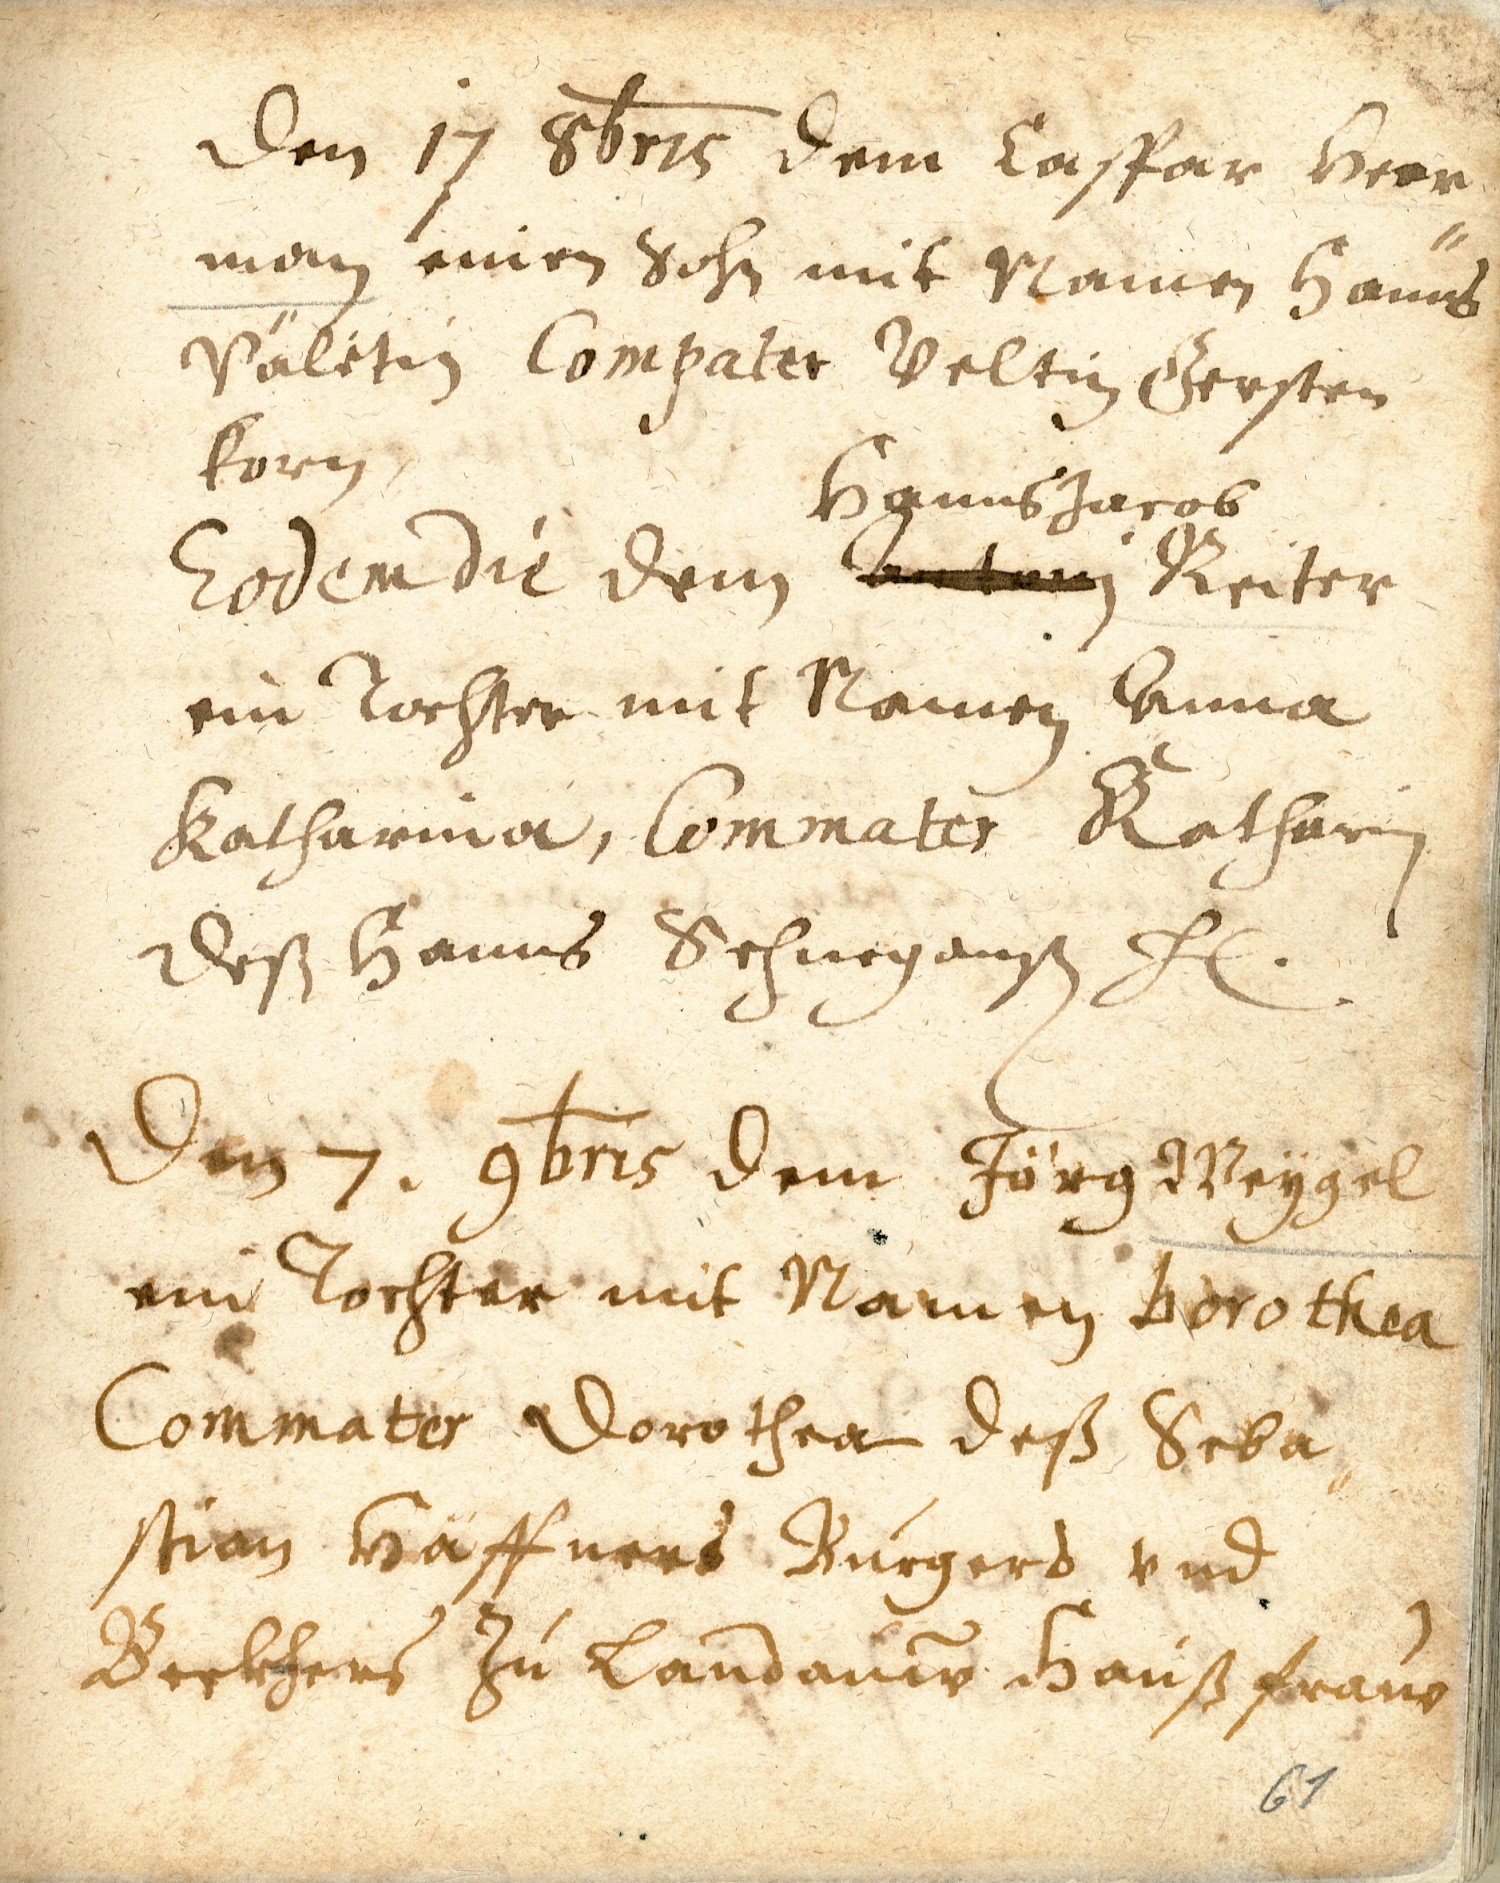 Den 17 8bris dem Caspar Herr
man einen Sohn mit Namen Hanns
Välētin Compater Veltin Gersten
korn,
Hanns Jacob
Eodem die dem Antonj Reiter
ein Tochter mit Namen Anna
Katharina, Commater Katharin
deß Hanns Schneganß
Den 7. 9bris dem Jörg Weygel
ein Tochter mit Namen Dorothea
Commater Dorothea deß Seba„
stian Haffners Burgers vnd
Beckhers Zu Landauw Haußfrauw
61